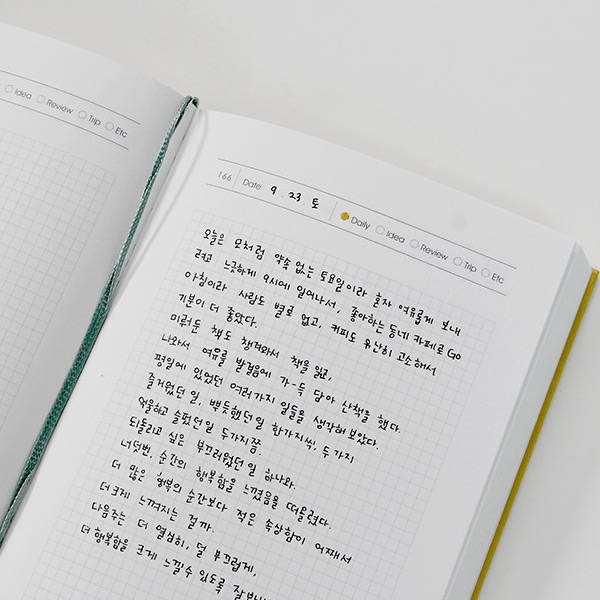 Idea Review Trip Etc
166 Date 9. 23. 토 Daily Idea Review Trip Etc
오늘은 모처럼 약속 없는 토요일이라 혼자 여유롭게 보내
려고 느긋하게 9시에 일어나서, 좋아하는 동네 카페로 GO
아침이라 사람도 별로 없고, 커피도 유난히 고소해서
기분이 더 좋았다.
미뤄둔 책도 챙겨와서 책을 읽고,
나와서 여유를 발걸음에 가-득 담아 산책을 했다.
평일에 있었던 여러가지 일들을 생각해보았다.
즐거웠던 일, 뿌듯했던 일 한가지씩, 두 가지
억울하고 슬펐던 일 두가지쯤.
되돌리고 싶은 부끄러웠던 일 하나와.
너덧번, 순간의 행복함을 느꼈음을 떠올렸다.
더 많은 행복의 순간보다 적은 속상함이 어째서
더 크게 느껴지는 걸까.
다음주는 더 열심히, 덜 부끄럽게,
더 행복함을 크게 느낄수 있도록